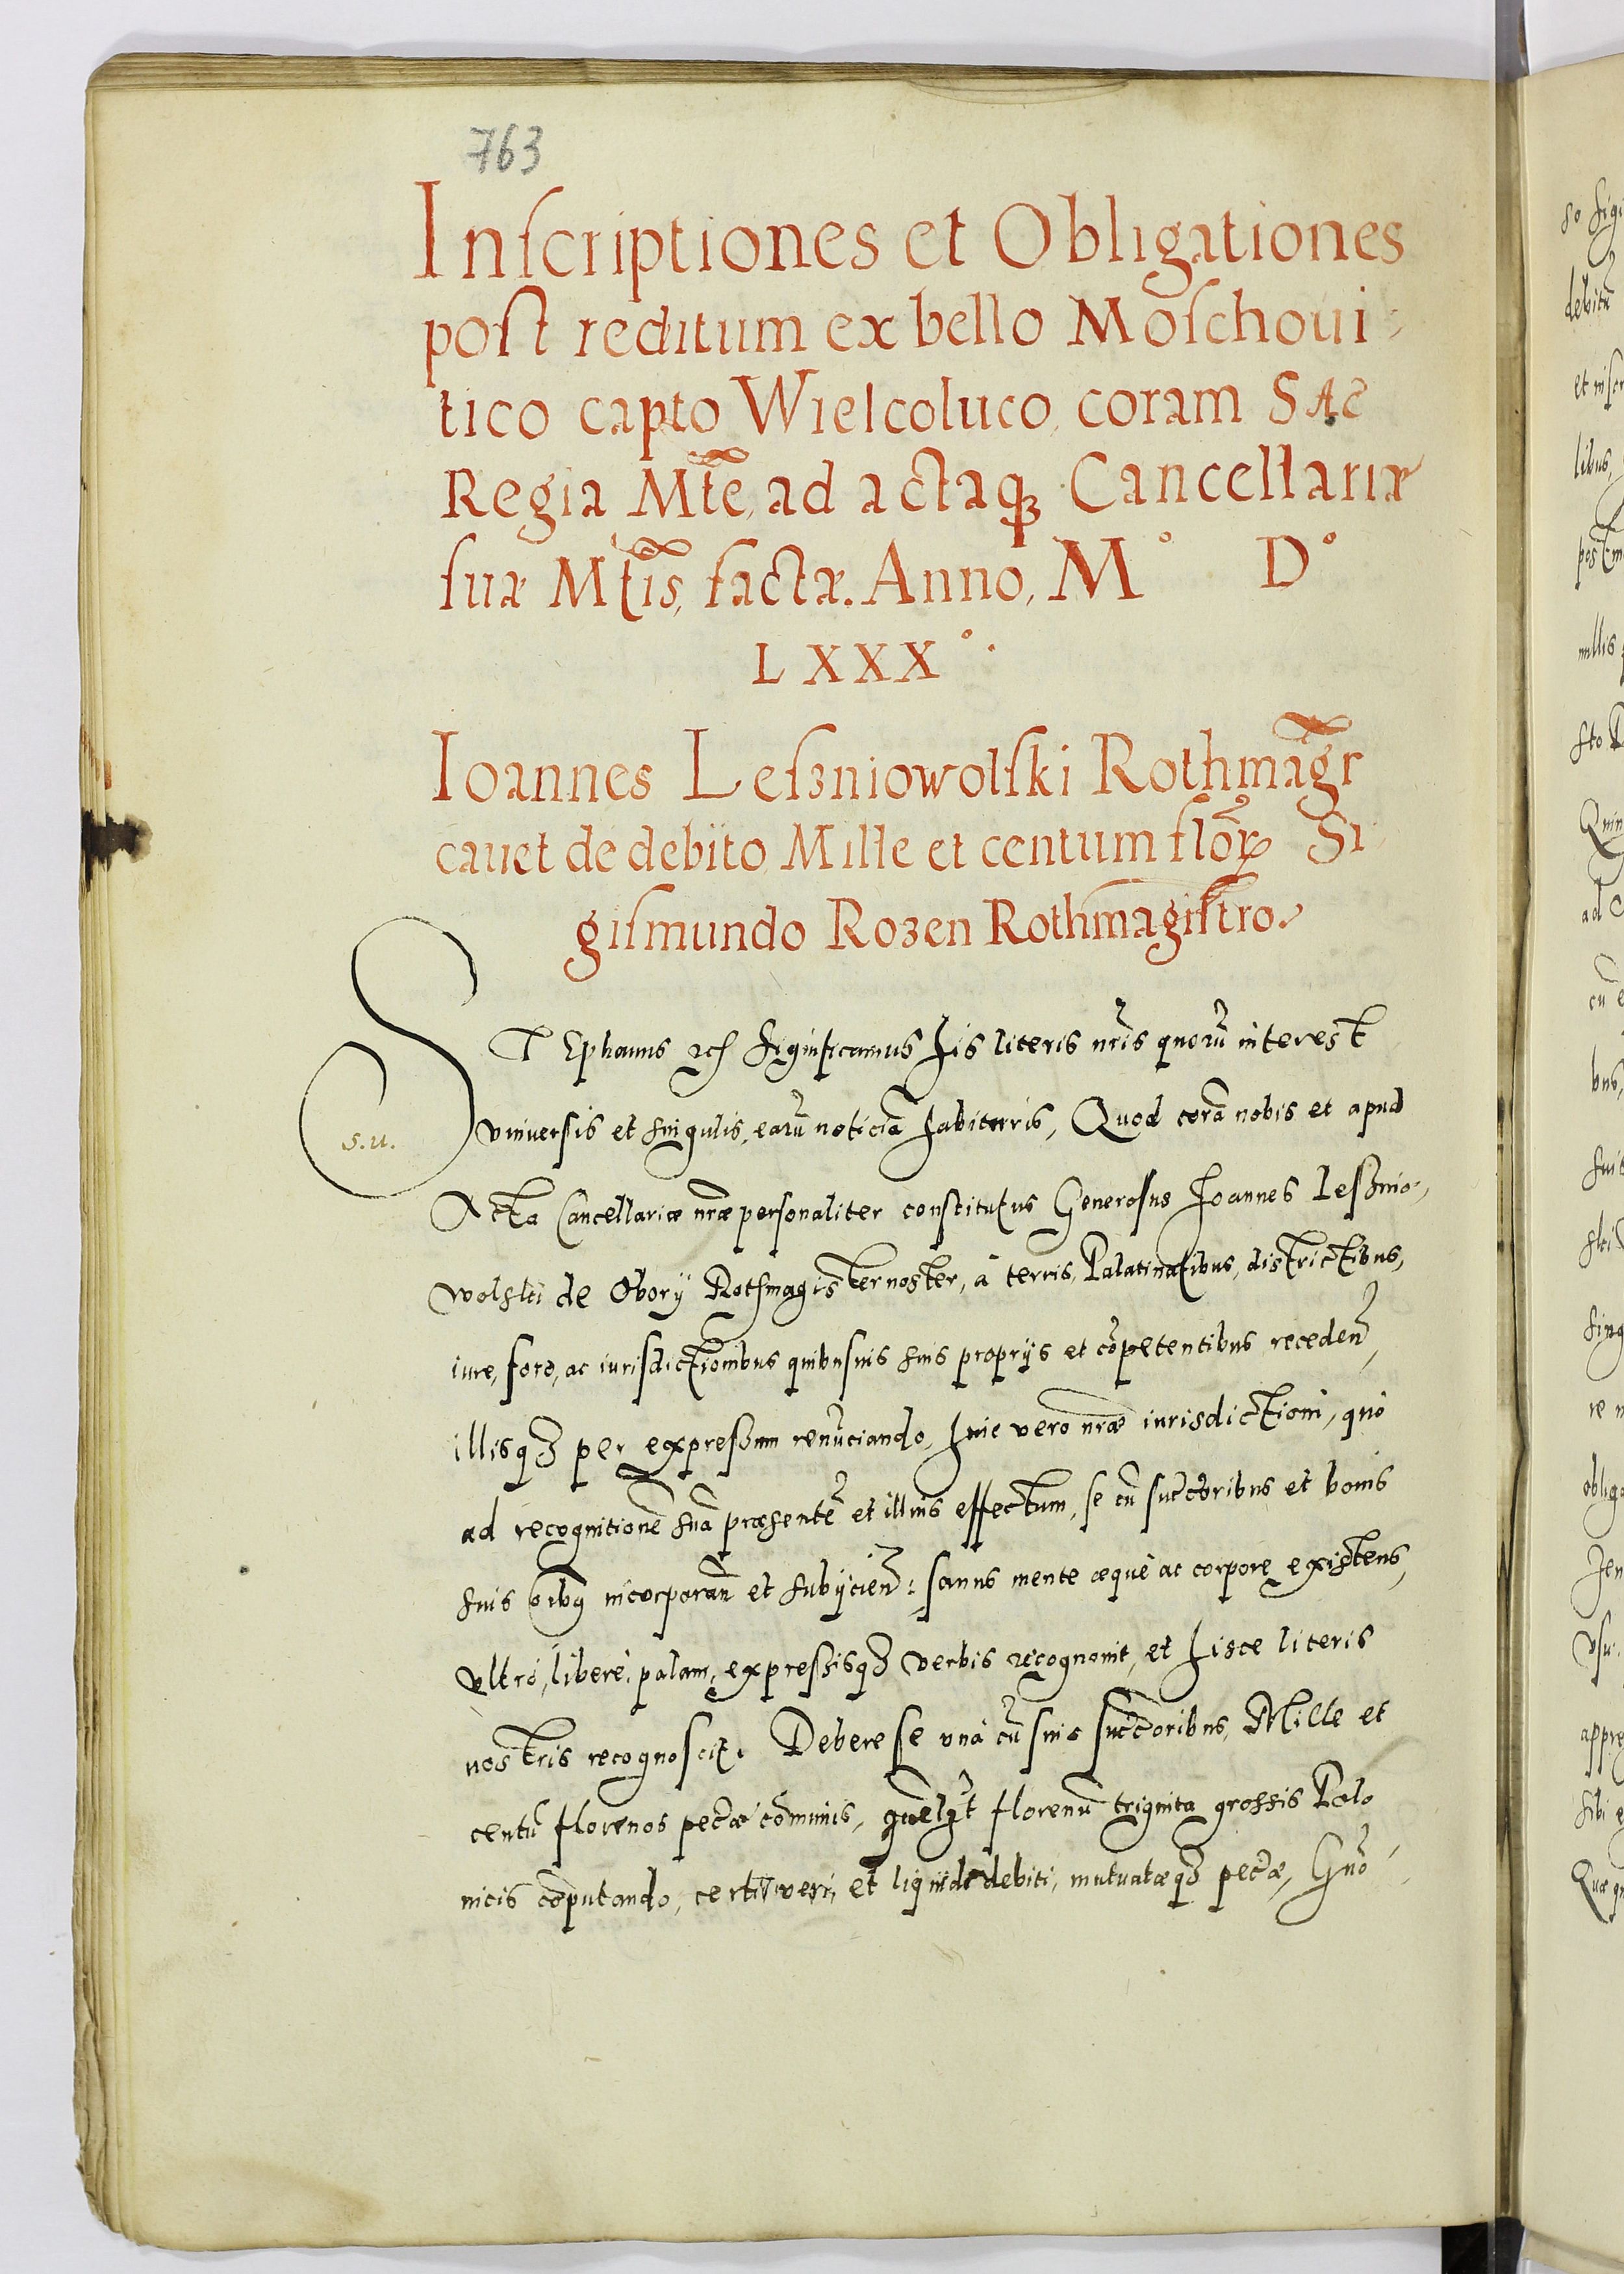 763
Inscriptiones et Obligationes
post reditum ex bello Moschoui,
tico capto Wielcoluco, coram Sac̃
Regia Mt̃e, ad actaqꝫ Cancellariæ
suæ Mt̃is, factæ. Anno, M° D°
LXXX°.
Ioannes Lesʒniowolski Rothmag̃r
cauet de debito Mille et centum flor̃ Si
gismundo Roʒen Rothmagistro.
STEphanus ꝛc̃ Significamus his literis nr̃is quorũ interest
s.u.
vniuersis et singulis, earũ noticiã habituris, Quod corã nobis et apud
Acta Cancellariæ nr̃æ personaliter constitutus Generosus Joannes Lesʒnio,
wolski de Obory Rothmagister noster, à terris, Palatinatibus, districtibus,
iure, foro, ac iurisdictionibus quibusuis suis proprijs et cõpetentibus receden̄,
illisqꝫ per expressum renũciando, huic vero nr̃æ iurisdictioni, quò
ad recognitionẽ suã præsentẽ et illius effectum, se cũ succ̃oribus et bonis
suis oĩbꝰ incorporan̄ et subijcien̄: sanus mente æquè ac corpore existens,
vltrò, liberè, palam, expressisqꝫ verbis recognouit, et hisce literis
nostris recognoscit. Debere se vnà cũ suis succ̃oribus, Mille et
centũ florenos pec̃æ cõmunis, florenũ triginta grossis Polo
nicis cõputando, certi veri, et liquidi debiti, mutuatæqꝫ pec̃æ, Gnõ